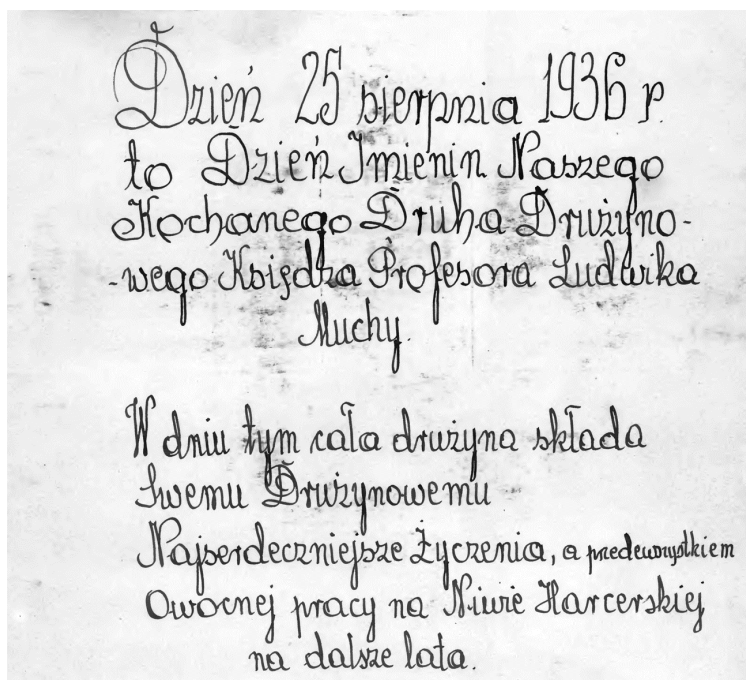 Dzień 25 sierpnia 1936 r.
to Dzień Imienin Naszego
Kochanego Druha Drużyno-
-wego Księdza Profesora Ludwika
Muchy.
W dniu tym cała drużyna składa
Swemu Drużynowemu
Najserdeczniejsze Życzenia, a przedewszystkiem
Owocnej pracy na Niwie Harcerskiej
na dalsze lata.